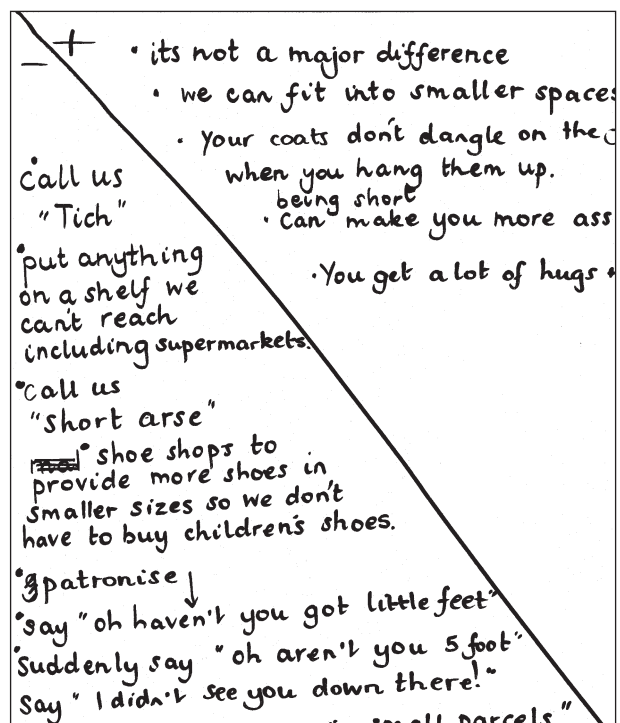 +
−
• its not a major difference
• we can fit into smaller spaces
• Your coats don't dangle on the
when you hang them up.
being short
• Can make you more
• You get a lot of hugs
• Call us
"Tich"
• put anything
on a shelf we
can't reach
including supermarkets.
• Call us
"Short arse"
• shoe shops to
provide more shoes in
smaller sizes so we don't
have to buy children's shoes.
• patronise ↓
• say "oh haven't you got little feet"
• Suddenly say "oh aren't you 5 foot"
Say "I didn't see you down there!"
small parcels"